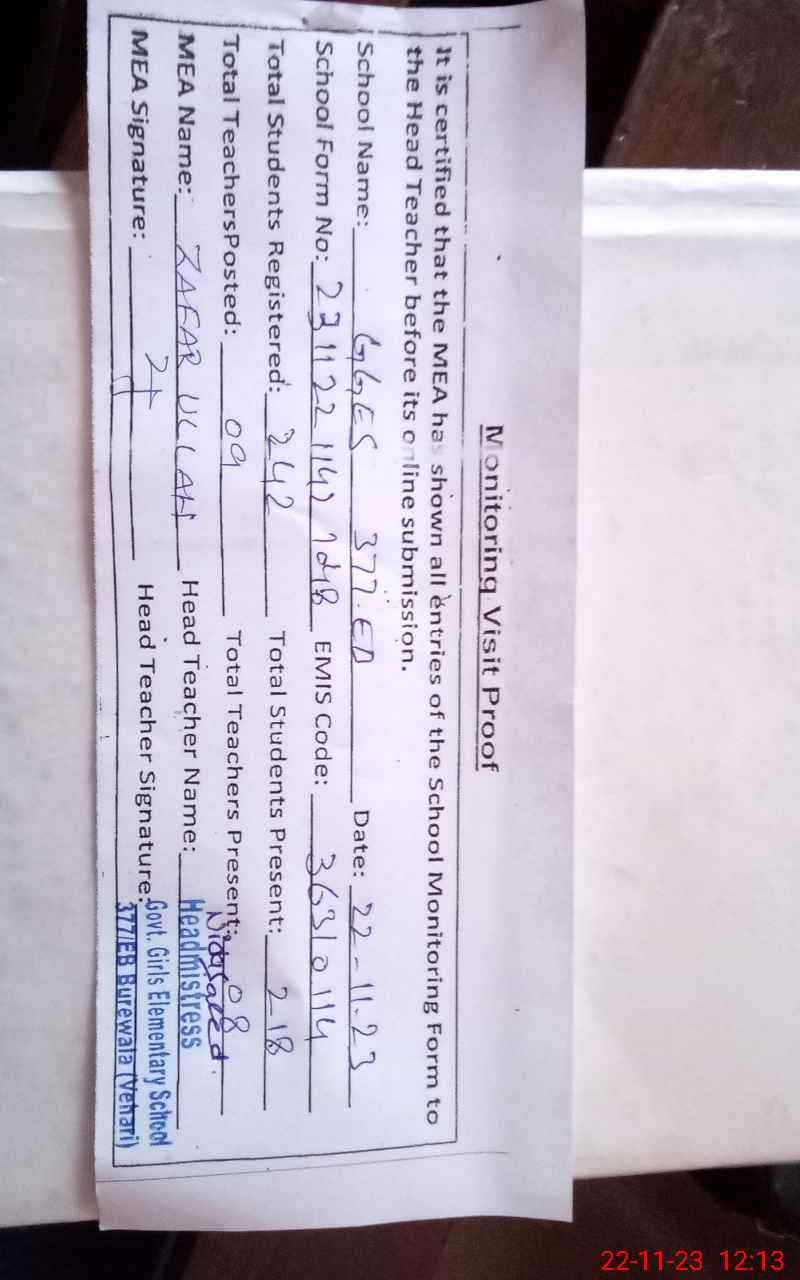 Monitoring Visit Proof
It is certified that the MEA has shown all entries of the School Monitoring Form to
the Head Teacher before its online submission.
School Name: GGES 377.EB Date: 22-11-23
School Form No: EMIS Code: 36310114
Total Students Registered: 242 Total Students Present: 218
Total TeachersPosted: 09 Total Teachers Present: 08
MEA Name: ZAFAR ULLAH Head Teacher Name:
Headmistress
MEA Signature: Head Teacher Signature:
Govt. Girls Elementary School
377/EB Burewala (Vehari)
22-11-23 12:13